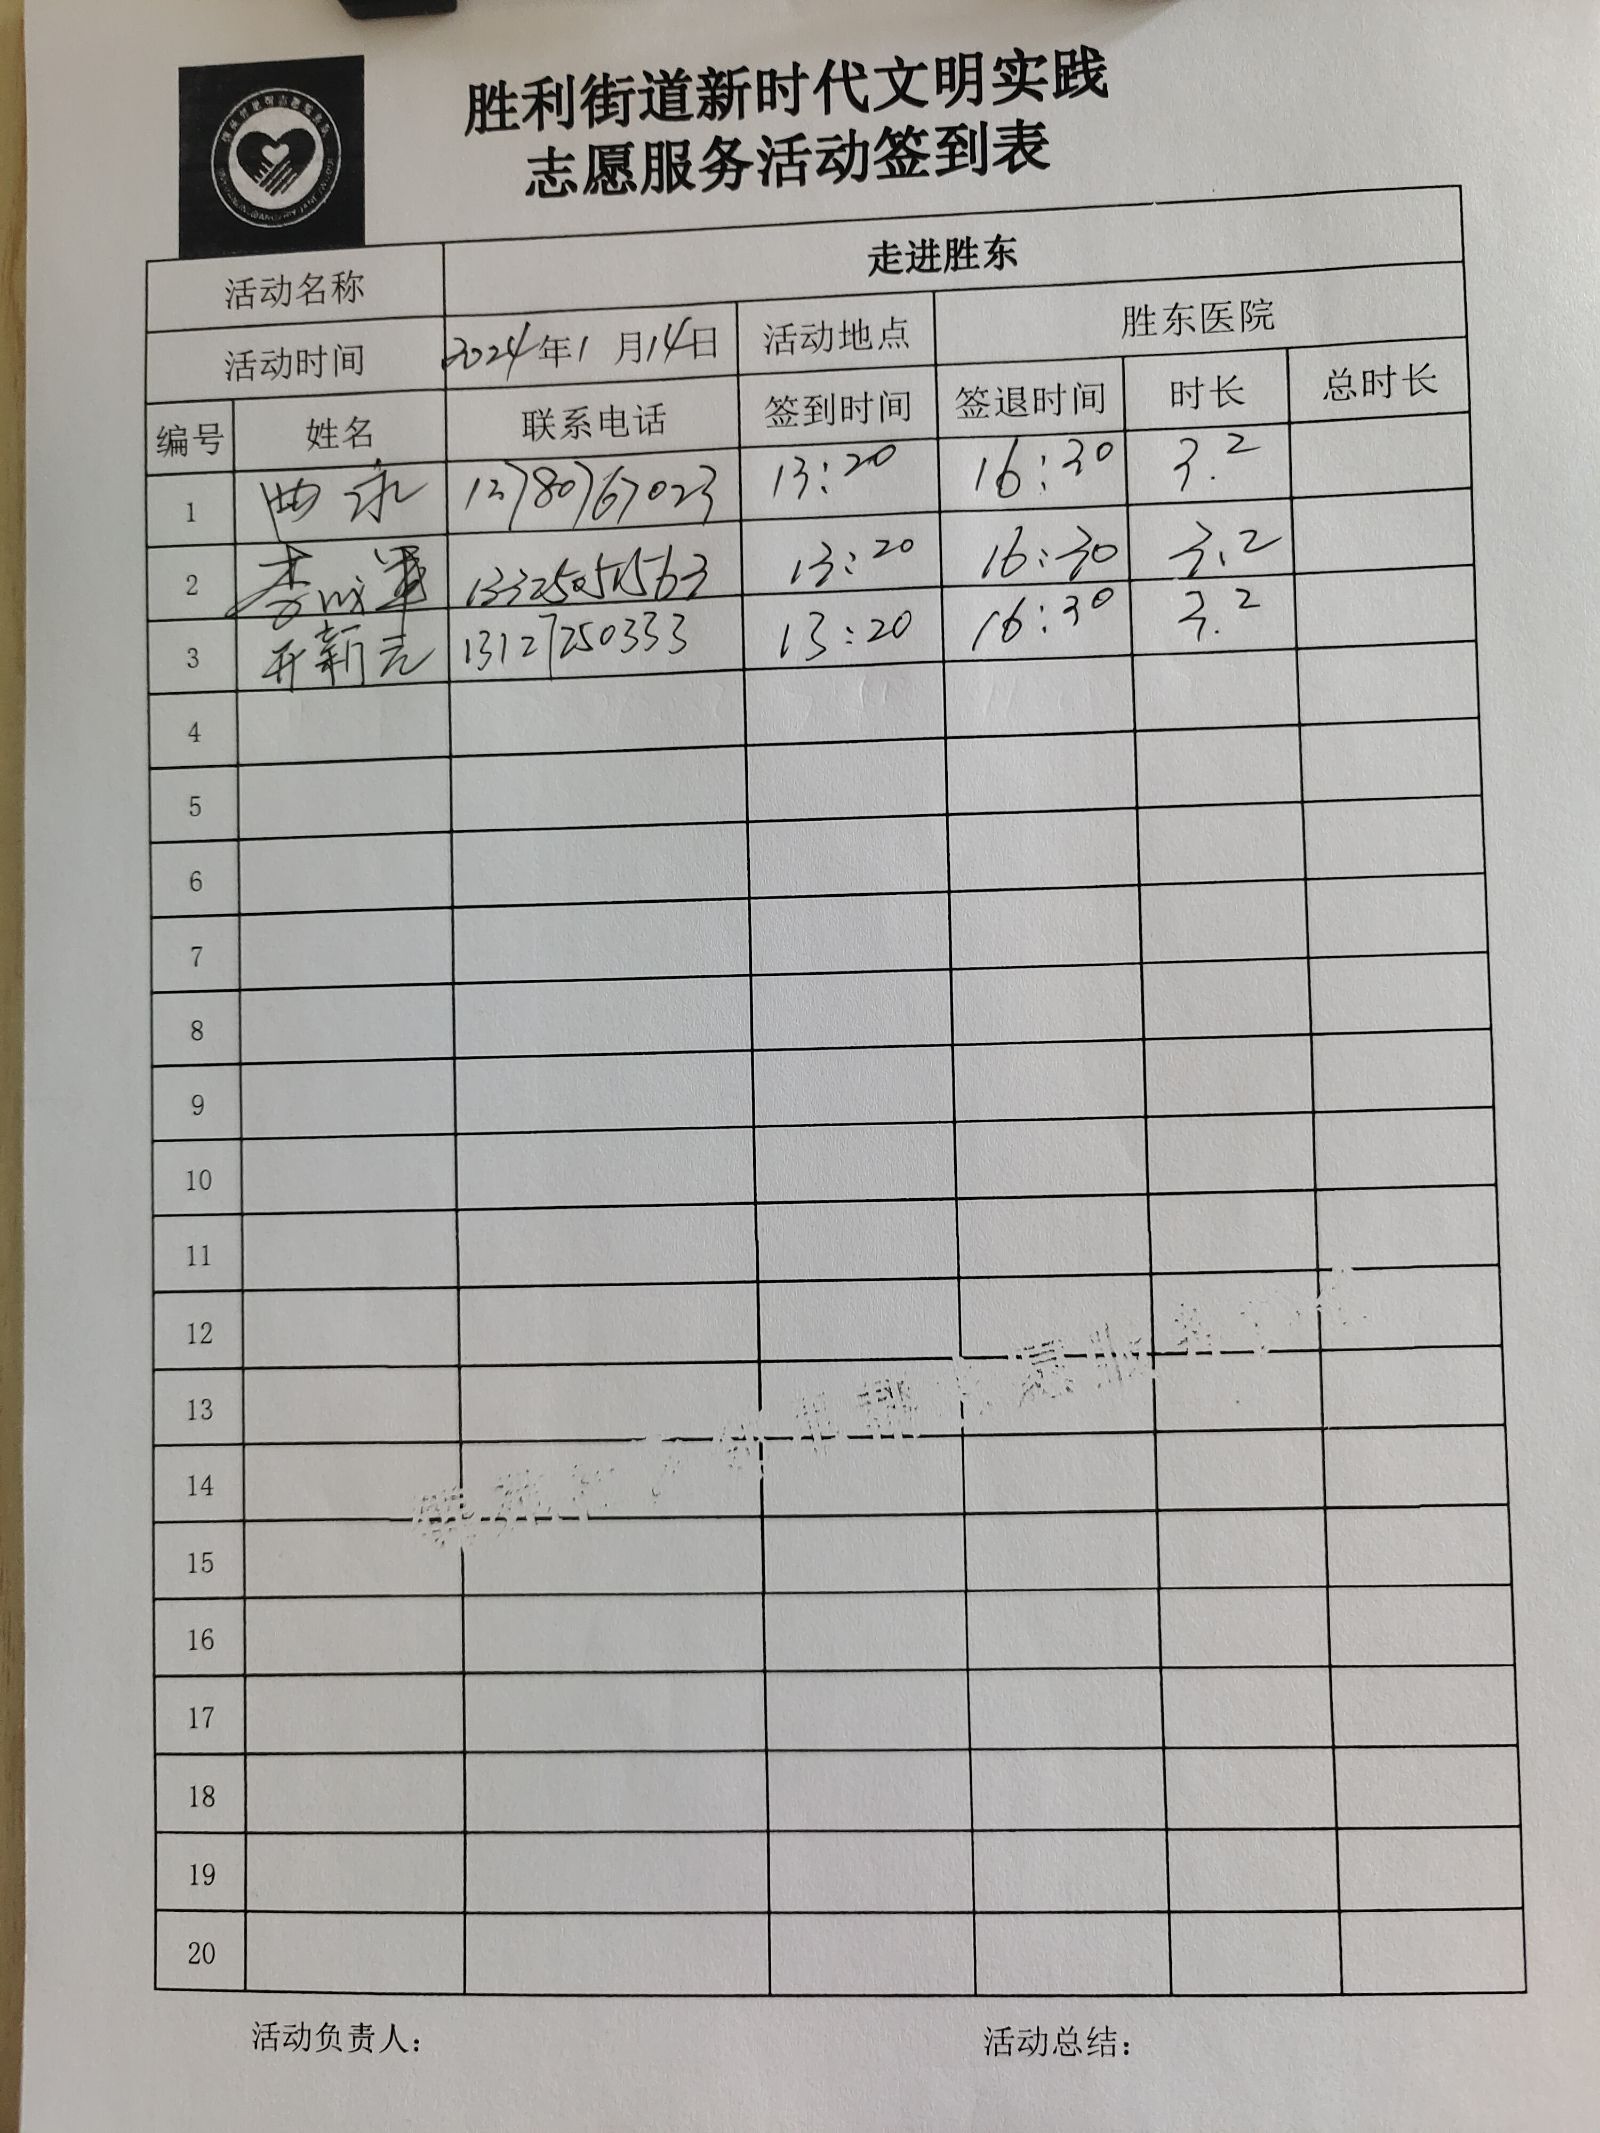 胜利街道新时代文明实践
志愿服务活动签到表
活动名称 走进胜东
活动时间 2024年1月14日 活动地点 胜东医院
编号 姓名 联系电话 签到时间 签退时间 时长 总时长
1 曲永 13780767023 13:20 16:30 3.2
2 李成军 13325051563 13:20 16:30 3.2
3 新 13127250333 13:20 16:30 3.2
4
5
6
7
8
9
10
11
12
13
14
15
16
17
18
19
20
活动负责人: 活动总结: